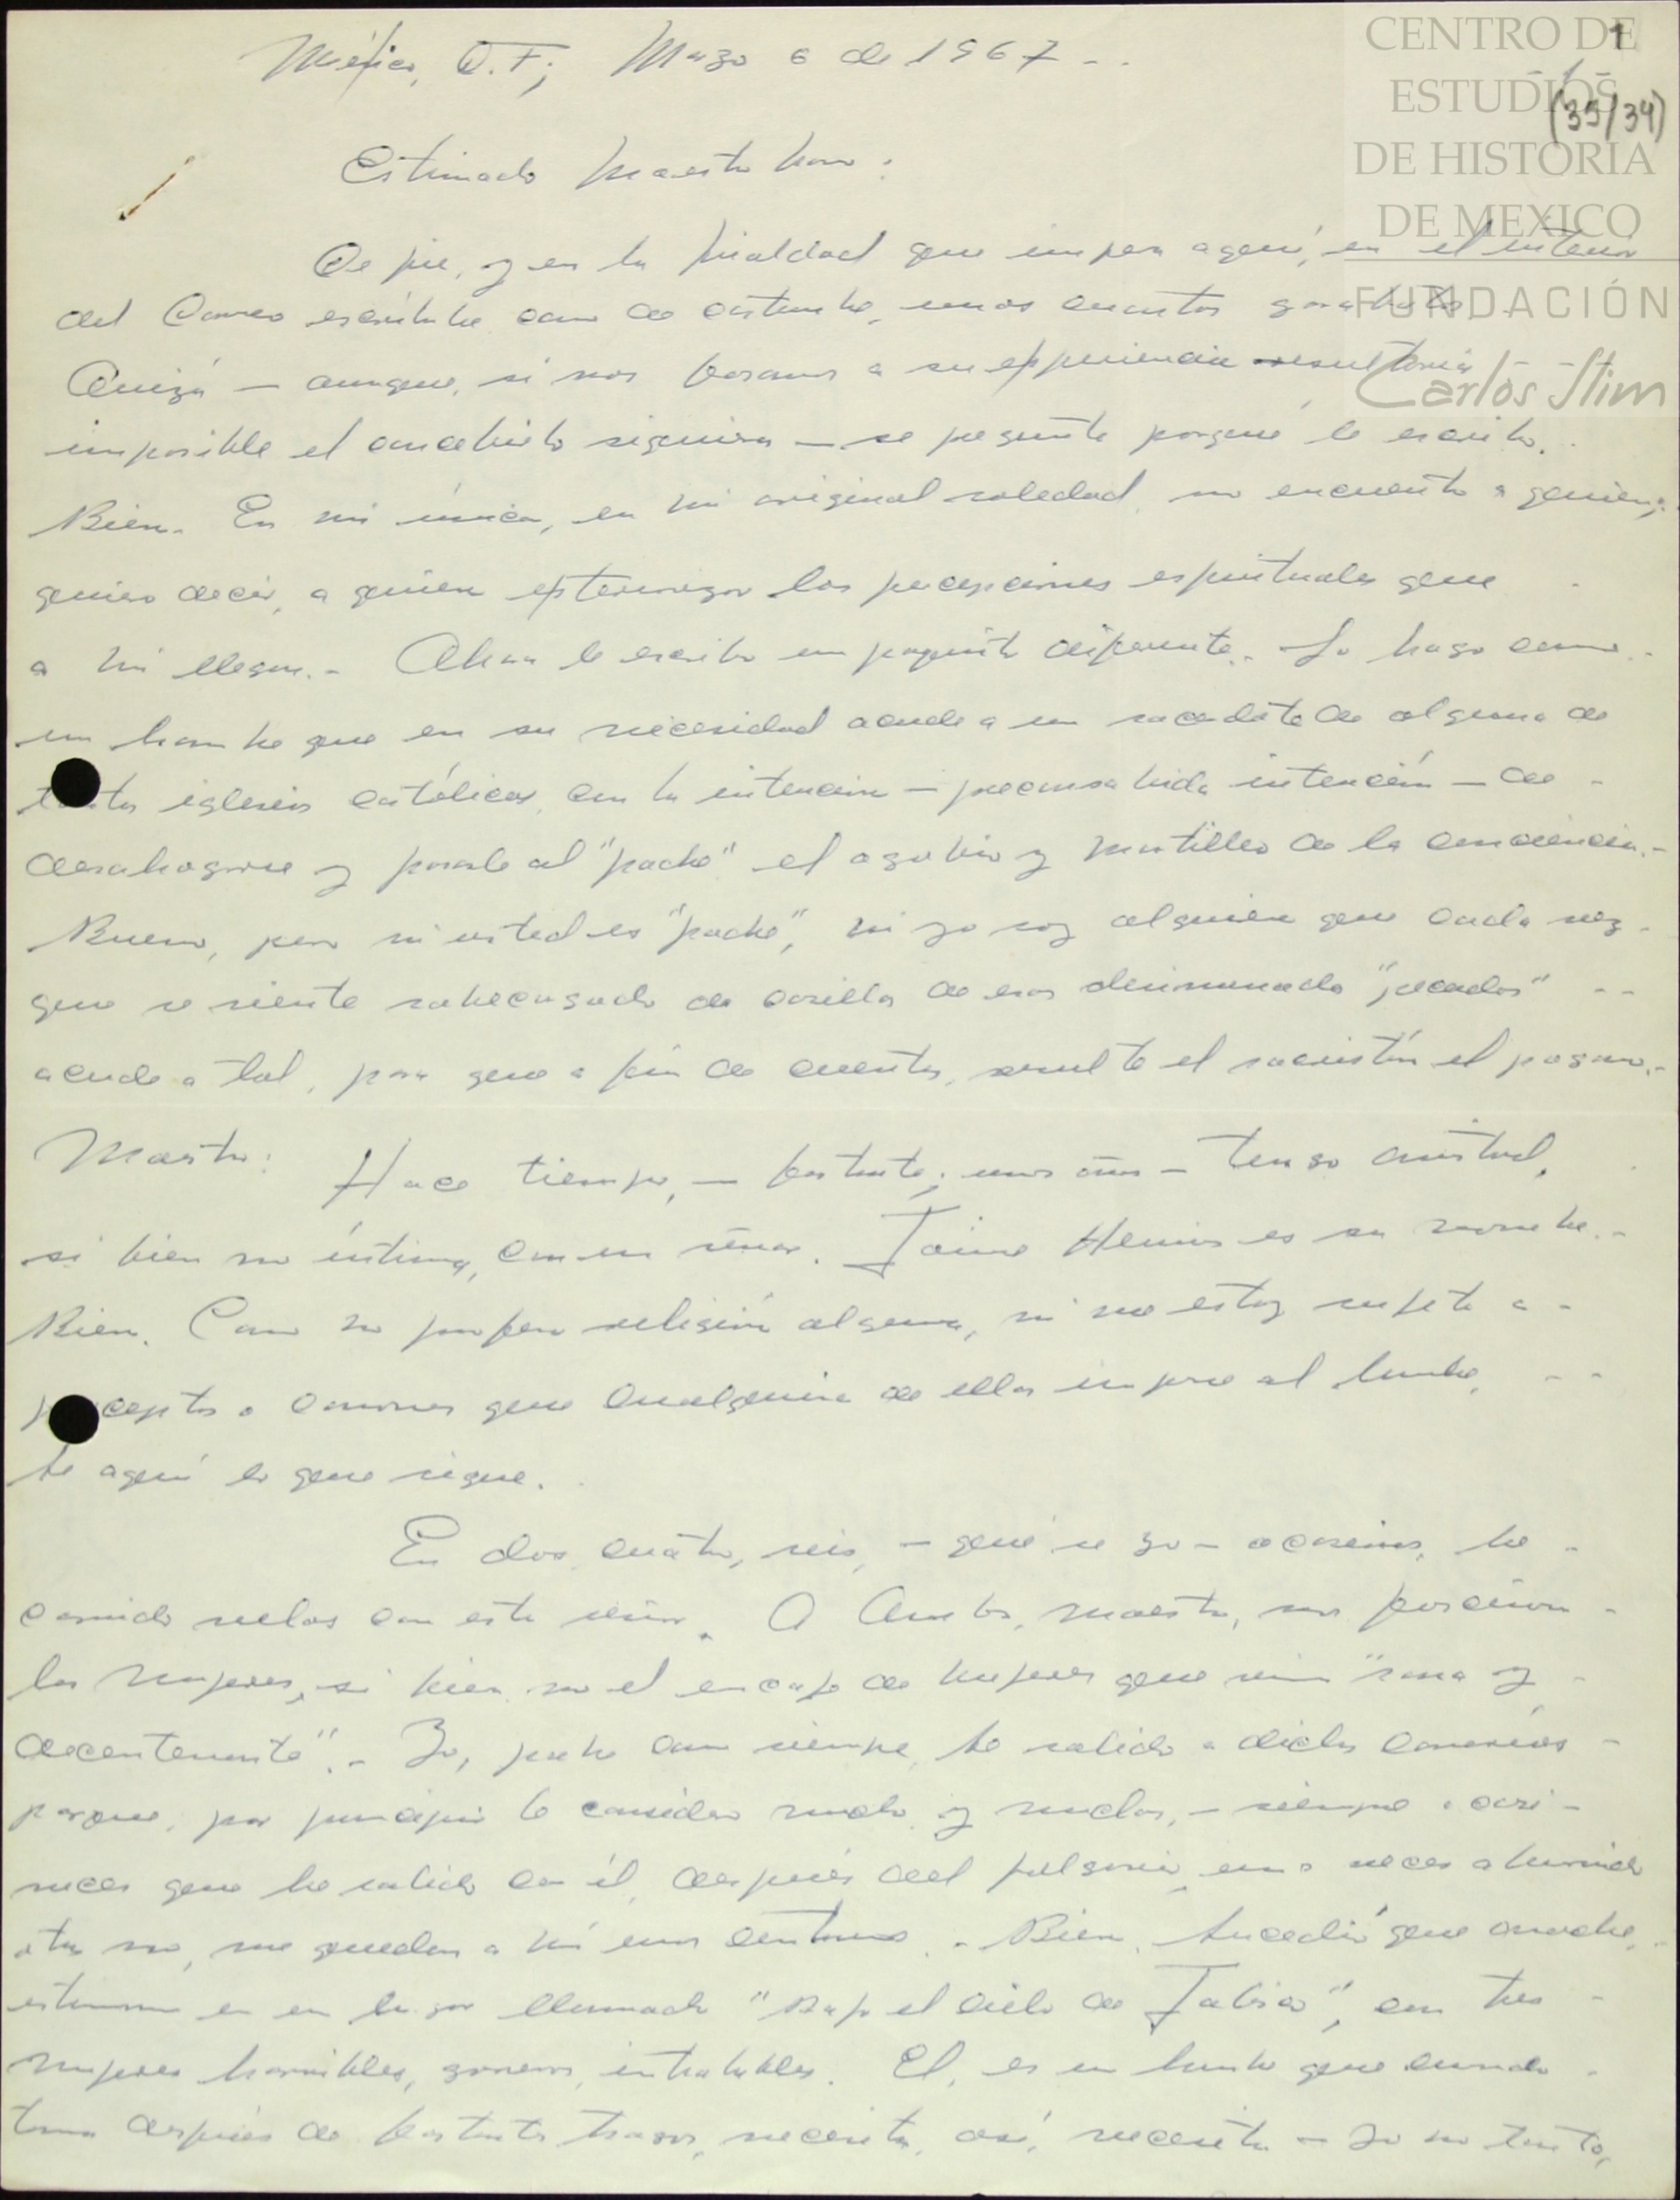 CENTRO DE
ESTUDIOS
DE HISTORIA
DE MEXICO
FUNDACIÓN
Carlos Slim
1
(35/34)
México, D.F; Marzo 6 de 1967 - -
Estimado Maestro:
De pie, y en la frialdad que impera aquí, en el interior
del Correo escríbole como de costumbre, unos cuantos garabatos.
Quizá — aunque, si nos basamos a su experiencia resultaría
imposible el concebirlo siquiera — se pregunte porqué le escribo.
Bien. En mi única, en mi original soledad, no encuentro a quien;
quiero decir, a quien externar las percepciones espirituales que -
a mí llegan.- Ahora le escribo un poquito diferente.- Lo hago como.-
un hombre que en su necesidad acude a un sacerdote de alguna de
tantas iglesias católicas, con la intención — intención — de -
desahogarse y pasarle al "padre" el agobio y martilleo de la conciencia.-
Bueno, pero ni usted es "padre", ni yo soy alguien que cada vez -
que se siente sobrecargado de esos denominados "pecados" - -
acude a tal, para que a fin de cuentas, resulte el sacristán el pagano.-
Maestro: Hace tiempo, — bastante; unos años — tengo amistad,
si bien no íntima, con un señor. Jaime es su nombre.-
Bien. Como no profeso religión alguna, ni me estoy sujeto a -
preceptos o cánones que cualquiera de ellas impone al hombre, - -
he aquí lo que sigue.
En dos, cuatro, seis, — qué sé yo — ocasiones, he -
corrido con este señor. A ambos, maestro, nos fascinan -
las mujeres, si bien no el de mujeres que "sana y -
decentemente".- Yo, pobre como siempre, he salido a dichas correrías -
porque, por principio lo considero malo y muchas, — siempre o casi -
veces que he salido con él, después del, a veces aburrido
otras no, me quedan a mí unos centavos.- Bien. Sucedió que anoche,
estuvimos en un lugar llamado "Bajo el Cielo de Jalisco", con tres -
mujeres horribles, intratables. Él, es un hombre que cuando -
toma después de bastantes tragos, necesita, así, necesita — yo no tanto,